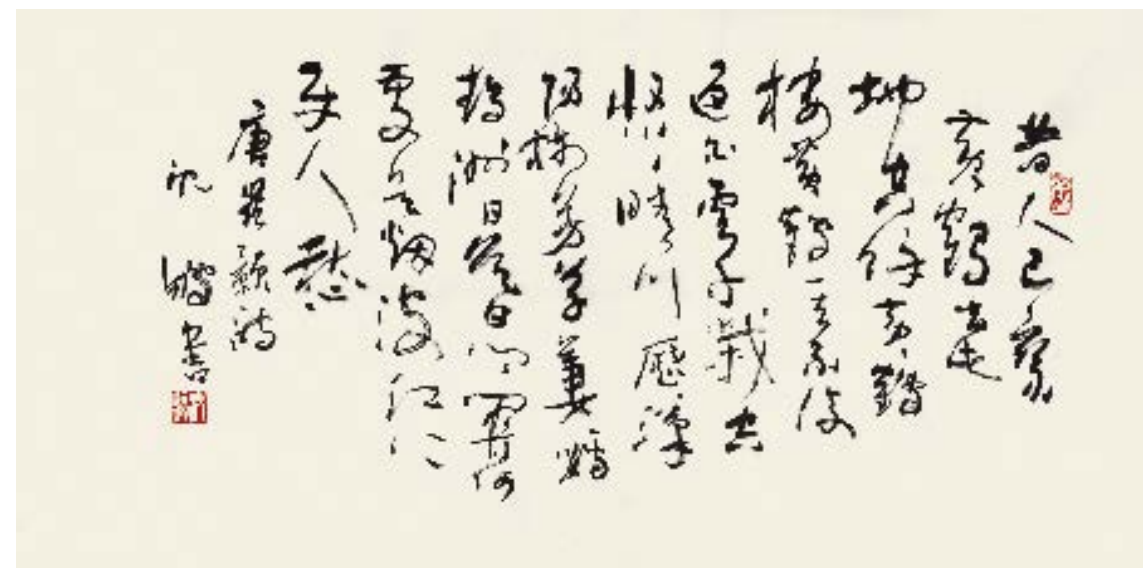 昔人已乘
黄鶴去此
地空餘黄鶴
樓黄鶴一去不復
返白雲千載空
悠悠晴川歷歷漢
陽樹芳草萋萋鸚
鵡洲日暮鄉關何
處是烟波江上
使人愁
唐崔顥詩
沈鵬書